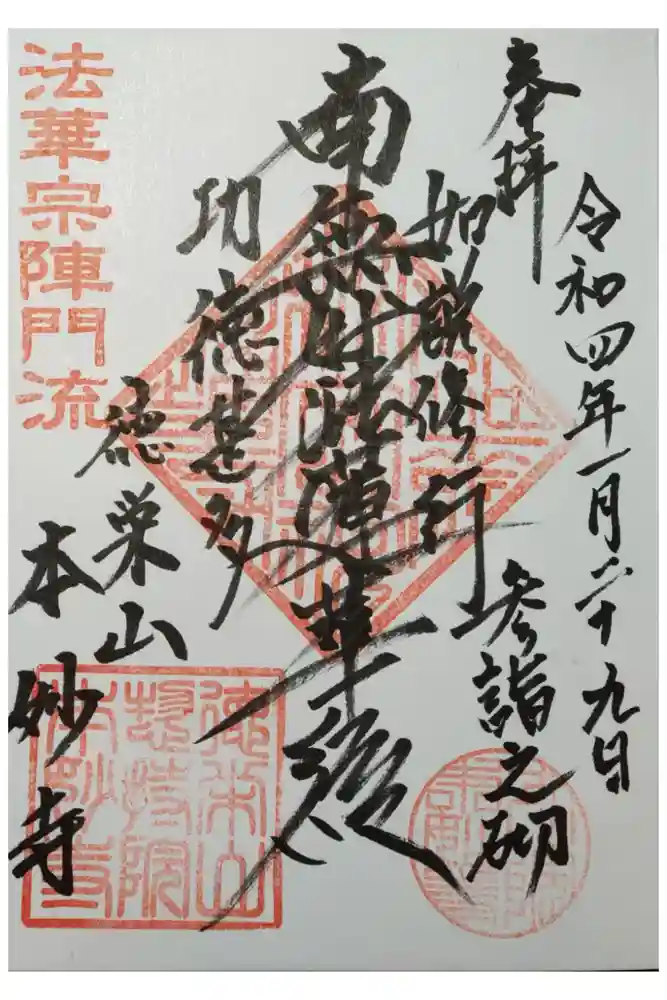 奉拝
令和四年一月二十九日
参詣之砌
如説修行
南無妙法蓮華経
功徳甚多
徳栄山
本妙寺
法華宗陣門流